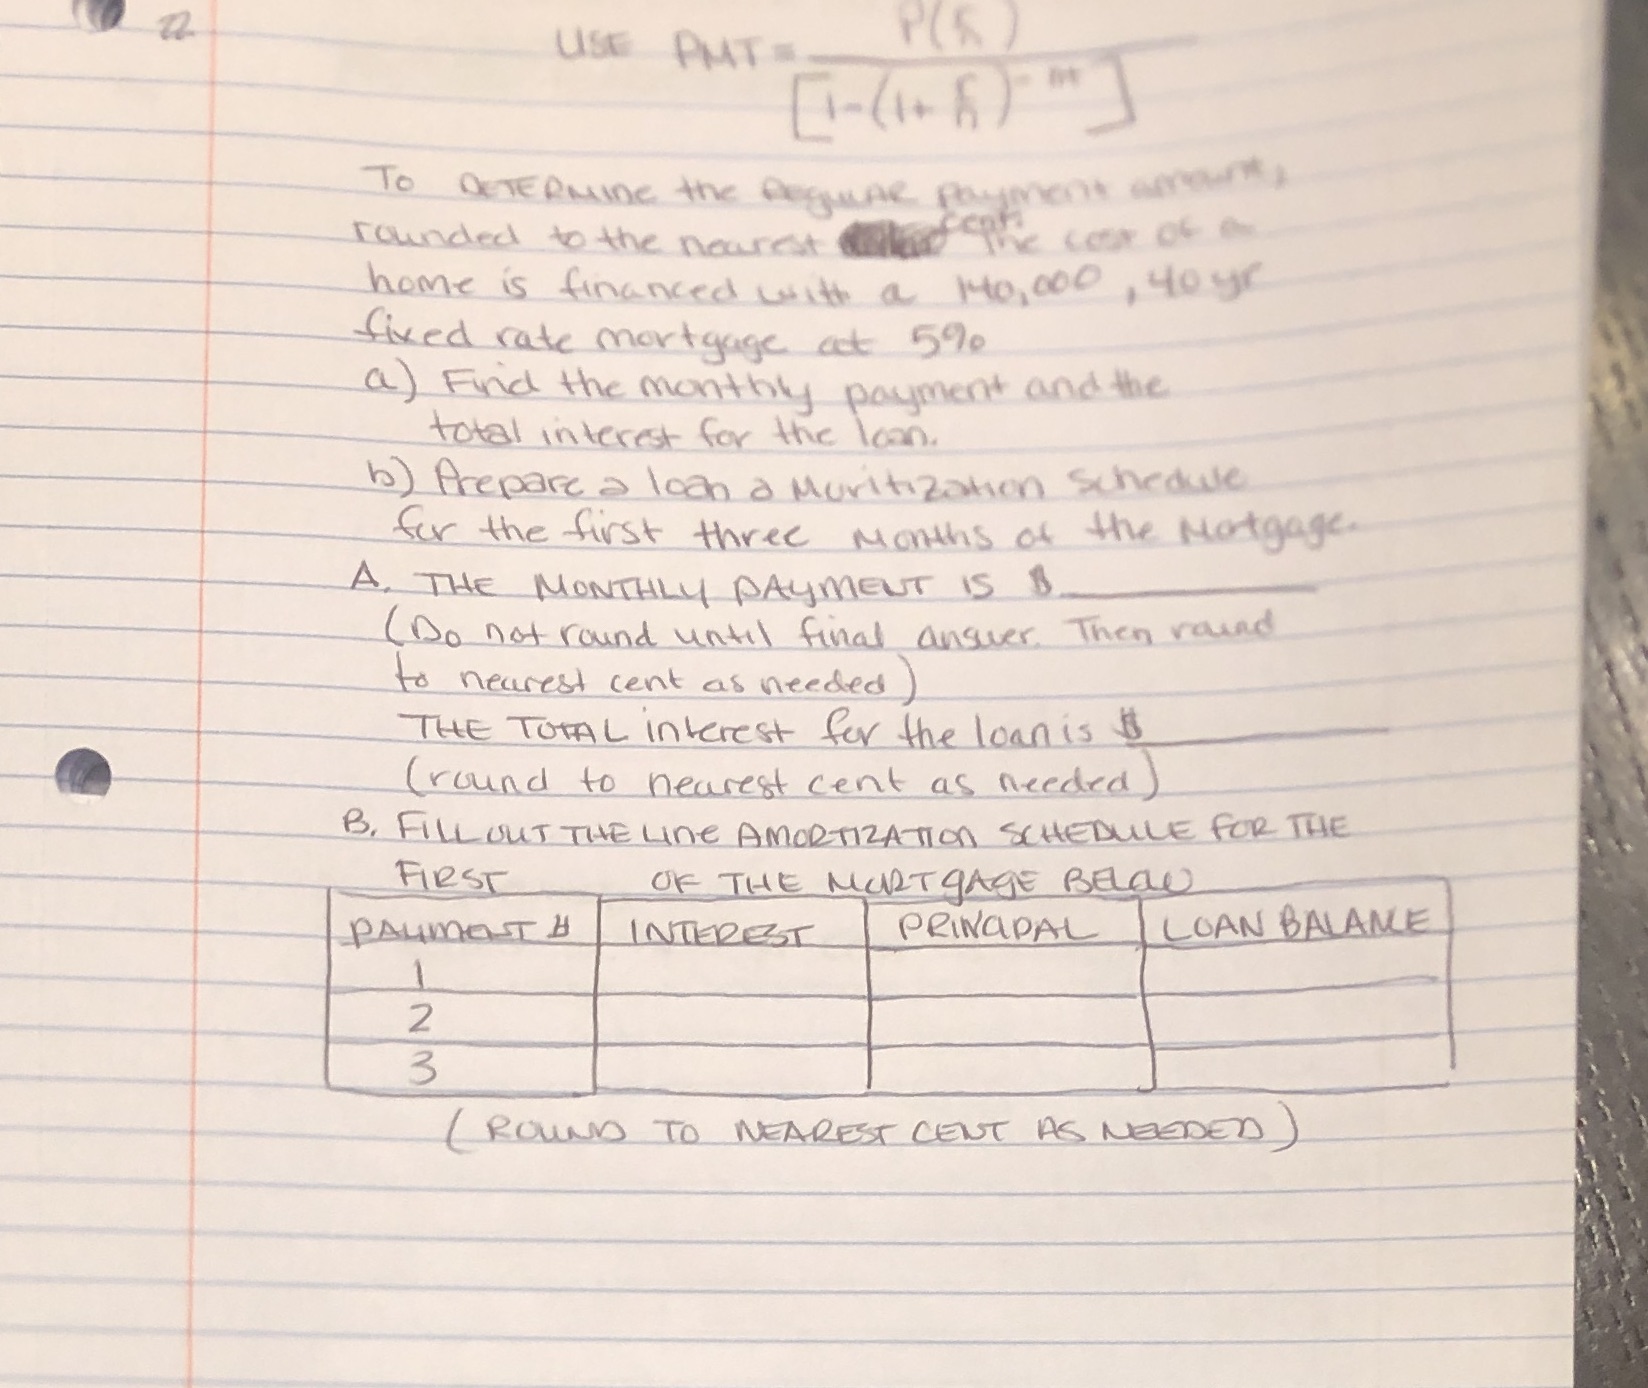 22
USE PMT = P(r/n)
[1-(1+ r/n)^-nt]
To DETERMINE the Regular payment amount,
rounded to the nearest cent. The cost of a
home is financed with a 140,000, 40 yr
fixed rate mortgage at 5%
a) Find the monthly payment and the
total interest for the loan.
b) Prepare a loan a Moritization Schedule
for the first three Months of the Mortgage.
A. THE MONTHLY PAYMENT IS $
(Do not round until final answer. Then round
to nearest cent as needed)
THE TOTAL interest for the loan is $
(round to nearest cent as needed)
B. FILL OUT THE LINE AMORTIZATION SCHEDULE FOR THE
FIRST OF THE MORTGAGE BELOW
PAYMENT # INTEREST PRINCIPAL LOAN BALANCE
1
2
3
(ROUND TO NEAREST CENT AS NEEDED)